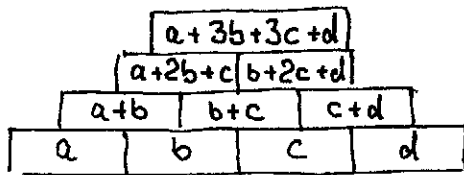 a+3b+3c+d
a+2b+c b+2c+d
a+b b+c c+d
a b c d